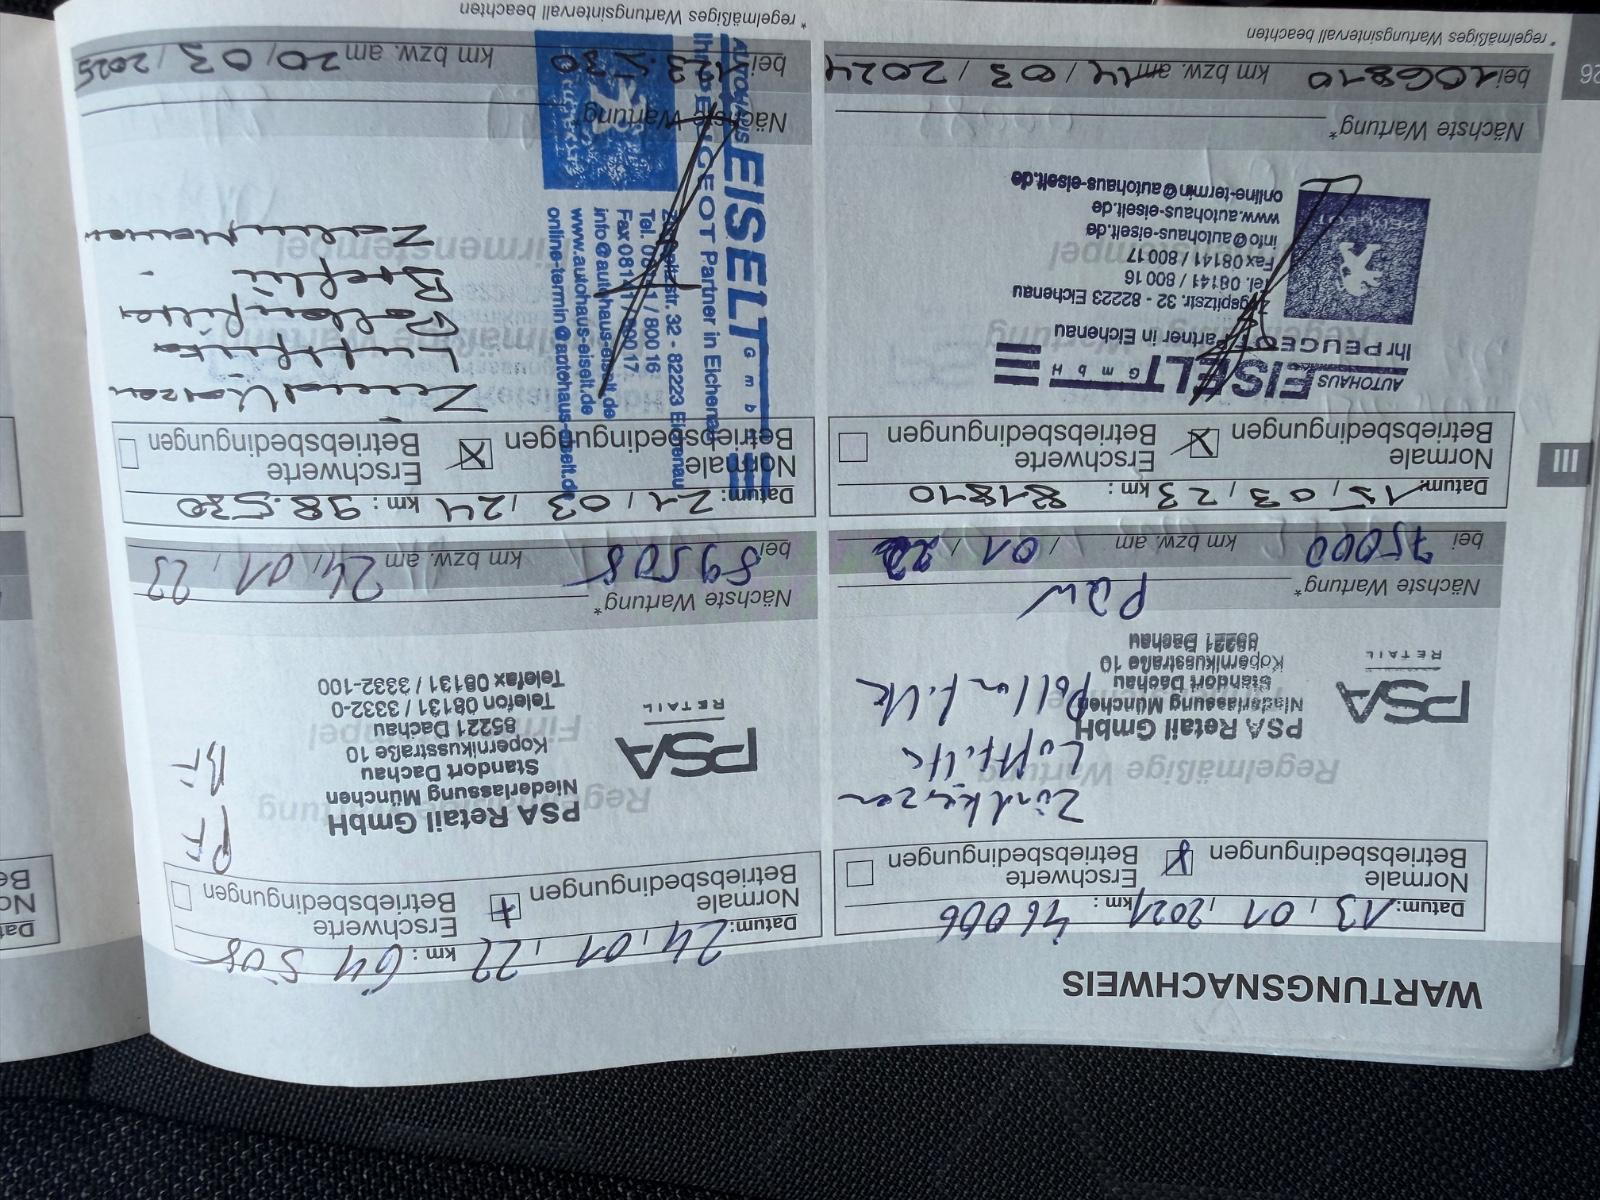 WARTUNGSNACHWEIS
Datum: 13, 01, 2021, km: 46006
Normale
Betriebsbedingungen
Erschwerte
Betriebsbedingungen
Zündkerzen
Luftfilter
Pollenfilter
PSA
RETAIL
PSA Retail GmbH
Niederlassung München
Standort Dachau
Kopernikusstraße 10
85221 Dachau
Nächste Wartung*
bei 75000 km bzw. am / 01 / 22
Datum: 24, 01, 22, km: 64 508
Normale
Betriebsbedingungen
Erschwerte
Betriebsbedingungen
PF
BF
PSA
RETAIL
PSA Retail GmbH
Niederlassung München
Standort Dachau
Kopernikusstraße 10
85221 Dachau
Telefon 08131 / 3332-0
Telefax 08131 / 3332-100
Nächste Wartung*
bei 89508 km bzw. am 24, 01, 23
Datum: 15, 03, 23, km: 81810
Normale
Betriebsbedingungen
Erschwerte
Betriebsbedingungen
AUTOHAUS
EISELT GmbH
Ihr PEUGEOT Partner in Eichenau
Zugspitzstr. 32 - 82223 Eichenau
Tel. 08141 / 800 16
Fax 08141 / 800 17
info@autohaus-eiselt.de
www.autohaus-eiselt.de
online-termin@autohaus-eiselt.de
Nächste Wartung*
bei 106810 km bzw. am 14 / 03 / 2024
*regelmäßiges Wartungsintervall beachten
Datum: 21, 03, 24 km: 98.530
Normale
Betriebsbedingungen
Erschwerte
Betriebsbedingungen
Zündkerzen
Luftfilter
Pollenfilter
Breflü
Zahnriemen
AUTOHAUS
EISELT GmbH
Ihr PEUGEOT Partner in Eichenau
Zugspitzstr. 32 - 82223 Eichenau
Tel. 08141 / 800 16
Fax 08141 / 800 17
info@autohaus-eiselt.de
www.autohaus-eiselt.de
online-termin@autohaus-eiselt.de
Nächste Wartung*
bei 123.530 km bzw. am 20 / 03 / 2025
*regelmäßiges Wartungsintervall beachten
III